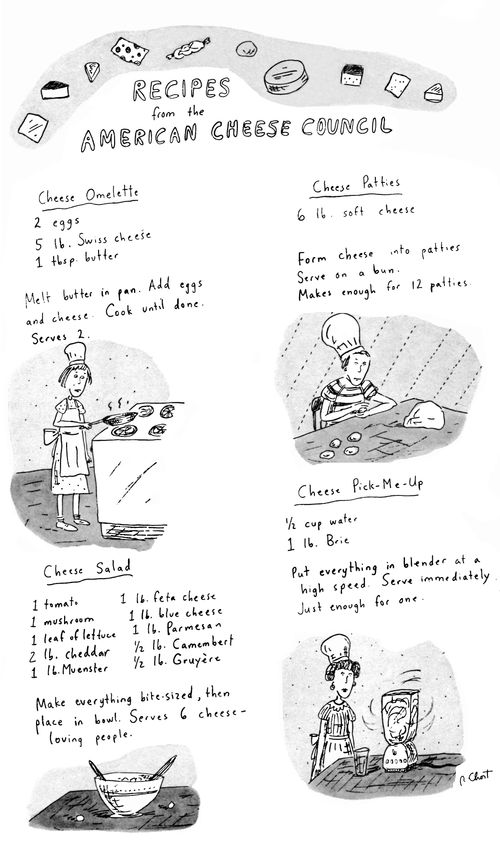 RECIPES
from the
AMERICAN CHEESE COUNCIL
Cheese Omelette
2 eggs
5 lb. Swiss cheese
1 tbsp. butter
Melt butter in pan. Add eggs
and cheese. Cook until done.
Serves 2.
Cheese Patties
6 lb. soft cheese
Form cheese into patties
Serve on a bun.
Makes enough for 12 patties.
Cheese Salad
1 tomato
1 mushroom
1 leaf of lettuce
2 lb. cheddar
1 lb. Muenster
1 lb. feta cheese
1 lb. blue cheese
1 lb. Parmesan
½ lb. Camembert
½ lb. Gruyère
Make everything bite-sized, then
place in bowl. Serves 6 cheese-
loving people.
Cheese Pick-Me-Up
½ cup water
1 lb. Brie
Put everything in blender at a
high speed. Serve immediately.
Just enough for one.
R. Chast